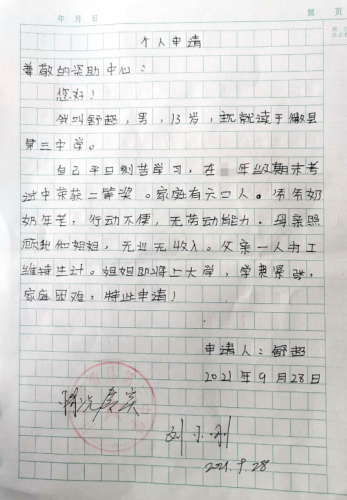 年 月 日 第 页
个人申请
尊敬的资助中心：
您好！
我叫舒超，男，13岁，现就读于徽县
第三中学。
自己平日刻苦学习，在 年级期末考
试中荣获二等奖。家庭有六口人。爷爷奶
奶年老，行动不便，无劳动能力。母亲照
顾我和姐姐，无业无收入。父亲一人打工
维持生计。姐姐即将上大学，学费紧张，
家庭困难，特此申请！
申请人：舒超
2021年9月28日
情况属实
刘小利
2021.9.28